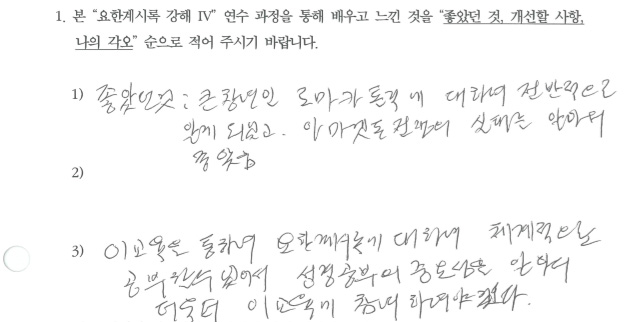 1. 본 “요한계시록 강해 IV” 연수 과정을 통해 배우고 느낀 것을 “좋았던 것, 개선할 사항,
나의 각오” 순으로 적어 주시기 바랍니다.
1) 좋았던것 : 큰창녀인 로마카톨릭에 대하여 전반적으로
알게 되었고. 아마겟돈전쟁의 실태를 알아서
좋았음
2)
3) 이교육을 통하여 요한계시록에 대하여 체계적으로
공부할수 있어서 성경공부의 중요성을 알았다
더욱더 이교육에 참여 하여야 겠다.